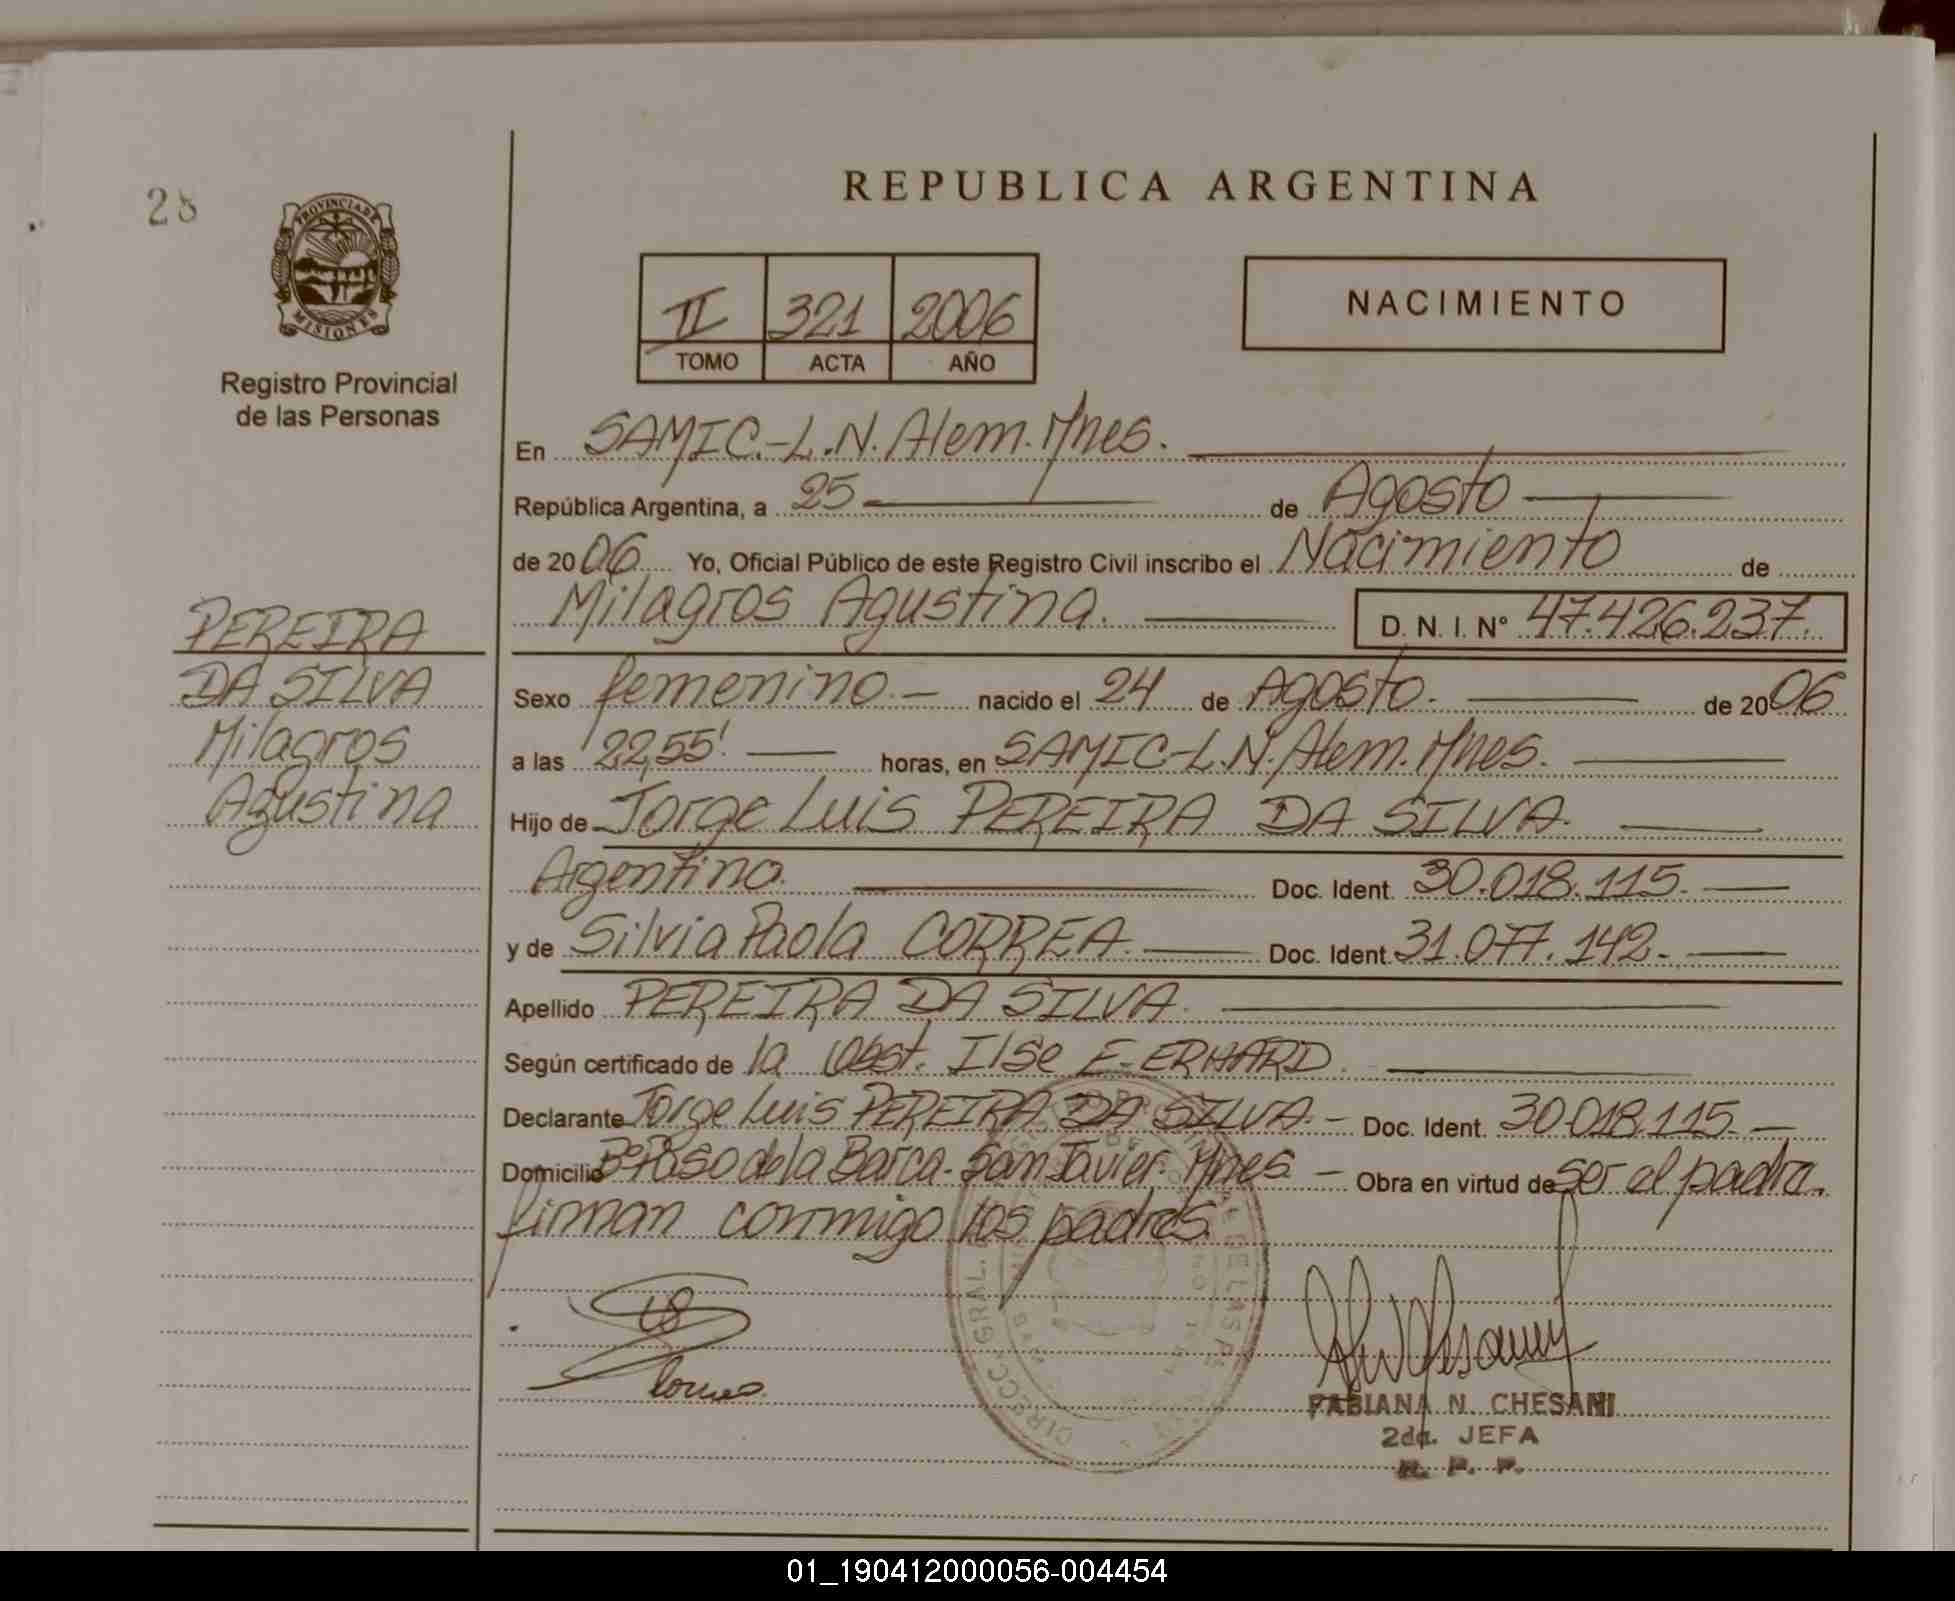 28
PROVINCIA DE
MISIONES
Registro Provincial
de las Personas
PEREIRA
DA SILVA
Milagros
Agustina
REPUBLICA ARGENTINA
II 321 2006
TOMO ACTA AÑO
NACIMIENTO
En SAMIC.-L.N.Alem.Mnes.
República Argentina, a 25 de Agosto
de 2006 Yo, Oficial Público de este Registro Civil inscribo el Nacimiento de
Milagros Agustina. D. N. I. N° 47.426.237.
Sexo femenino.- nacido el 24 de Agosto. de 2006
a las 22,55' horas, en SAMIC-L.N.Alem.Mnes.
Hijo de Jorge Luis PEREIRA DA SILVA.
Argentino. Doc. Ident. 30.018.115.
y de Silvia Paola CORREA. Doc. Ident. 31.077.142.-
Apellido PEREIRA DA SILVA.
Según certificado de la Obst. Ilse E. ERHARD.
Declarante Jorge Luis PEREIRA DA SILVA.- Doc. Ident. 30.018.115.-
Domicilio B°Paso de la Barca. San Javier. Mnes.- Obra en virtud de ser el padre.
firman conmigo los padres.
FABIANA N. CHESANI
2da. JEFA
R. P. P.
01_190412000056-004454